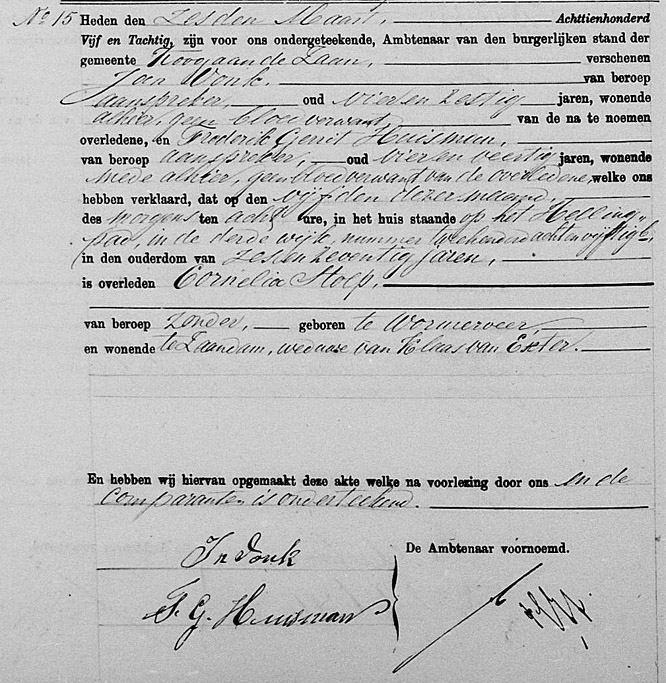 No 15 Heden den zesden Maart, Achttienhonderd
Vijf en Tachtig, zijn voor ons ondergeteekende, Ambtenaar van den burgerlijken stand der
gemeente Koog aan de Zaan, verschenen
Jan Vonk, van beroep
aanspreker, oud vier en zestig jaren, wonende
alhier, geen bloedverwant van de na te noemen
overledene, en Frederik Gerrit Huisman,
van beroep aanspreker, oud vier en veertig jaren, wonende
mede alhier, geen bloedverwant van de overledene, welke ons
hebben verklaard, dat op den vijfden dezer maand,
des morgens ten acht ure, in het huis staande op het Helling-
pad, in de derde wijk, nummer twee honderd acht en vijftig b,
in den ouderdom van zes en zeventig jaren,
is overleden Cornelia Stolp,
van beroep zonder, geboren te Wormerveer,
en wonende te Zaandam, weduwe van Klaas van Exter.
En hebben wij hiervan opgemaakt deze akte welke na voorlezing door ons en de
comparanten is onderteekend.
De Ambtenaar voornoemd.
Jn Vonk
F. G. Huisman